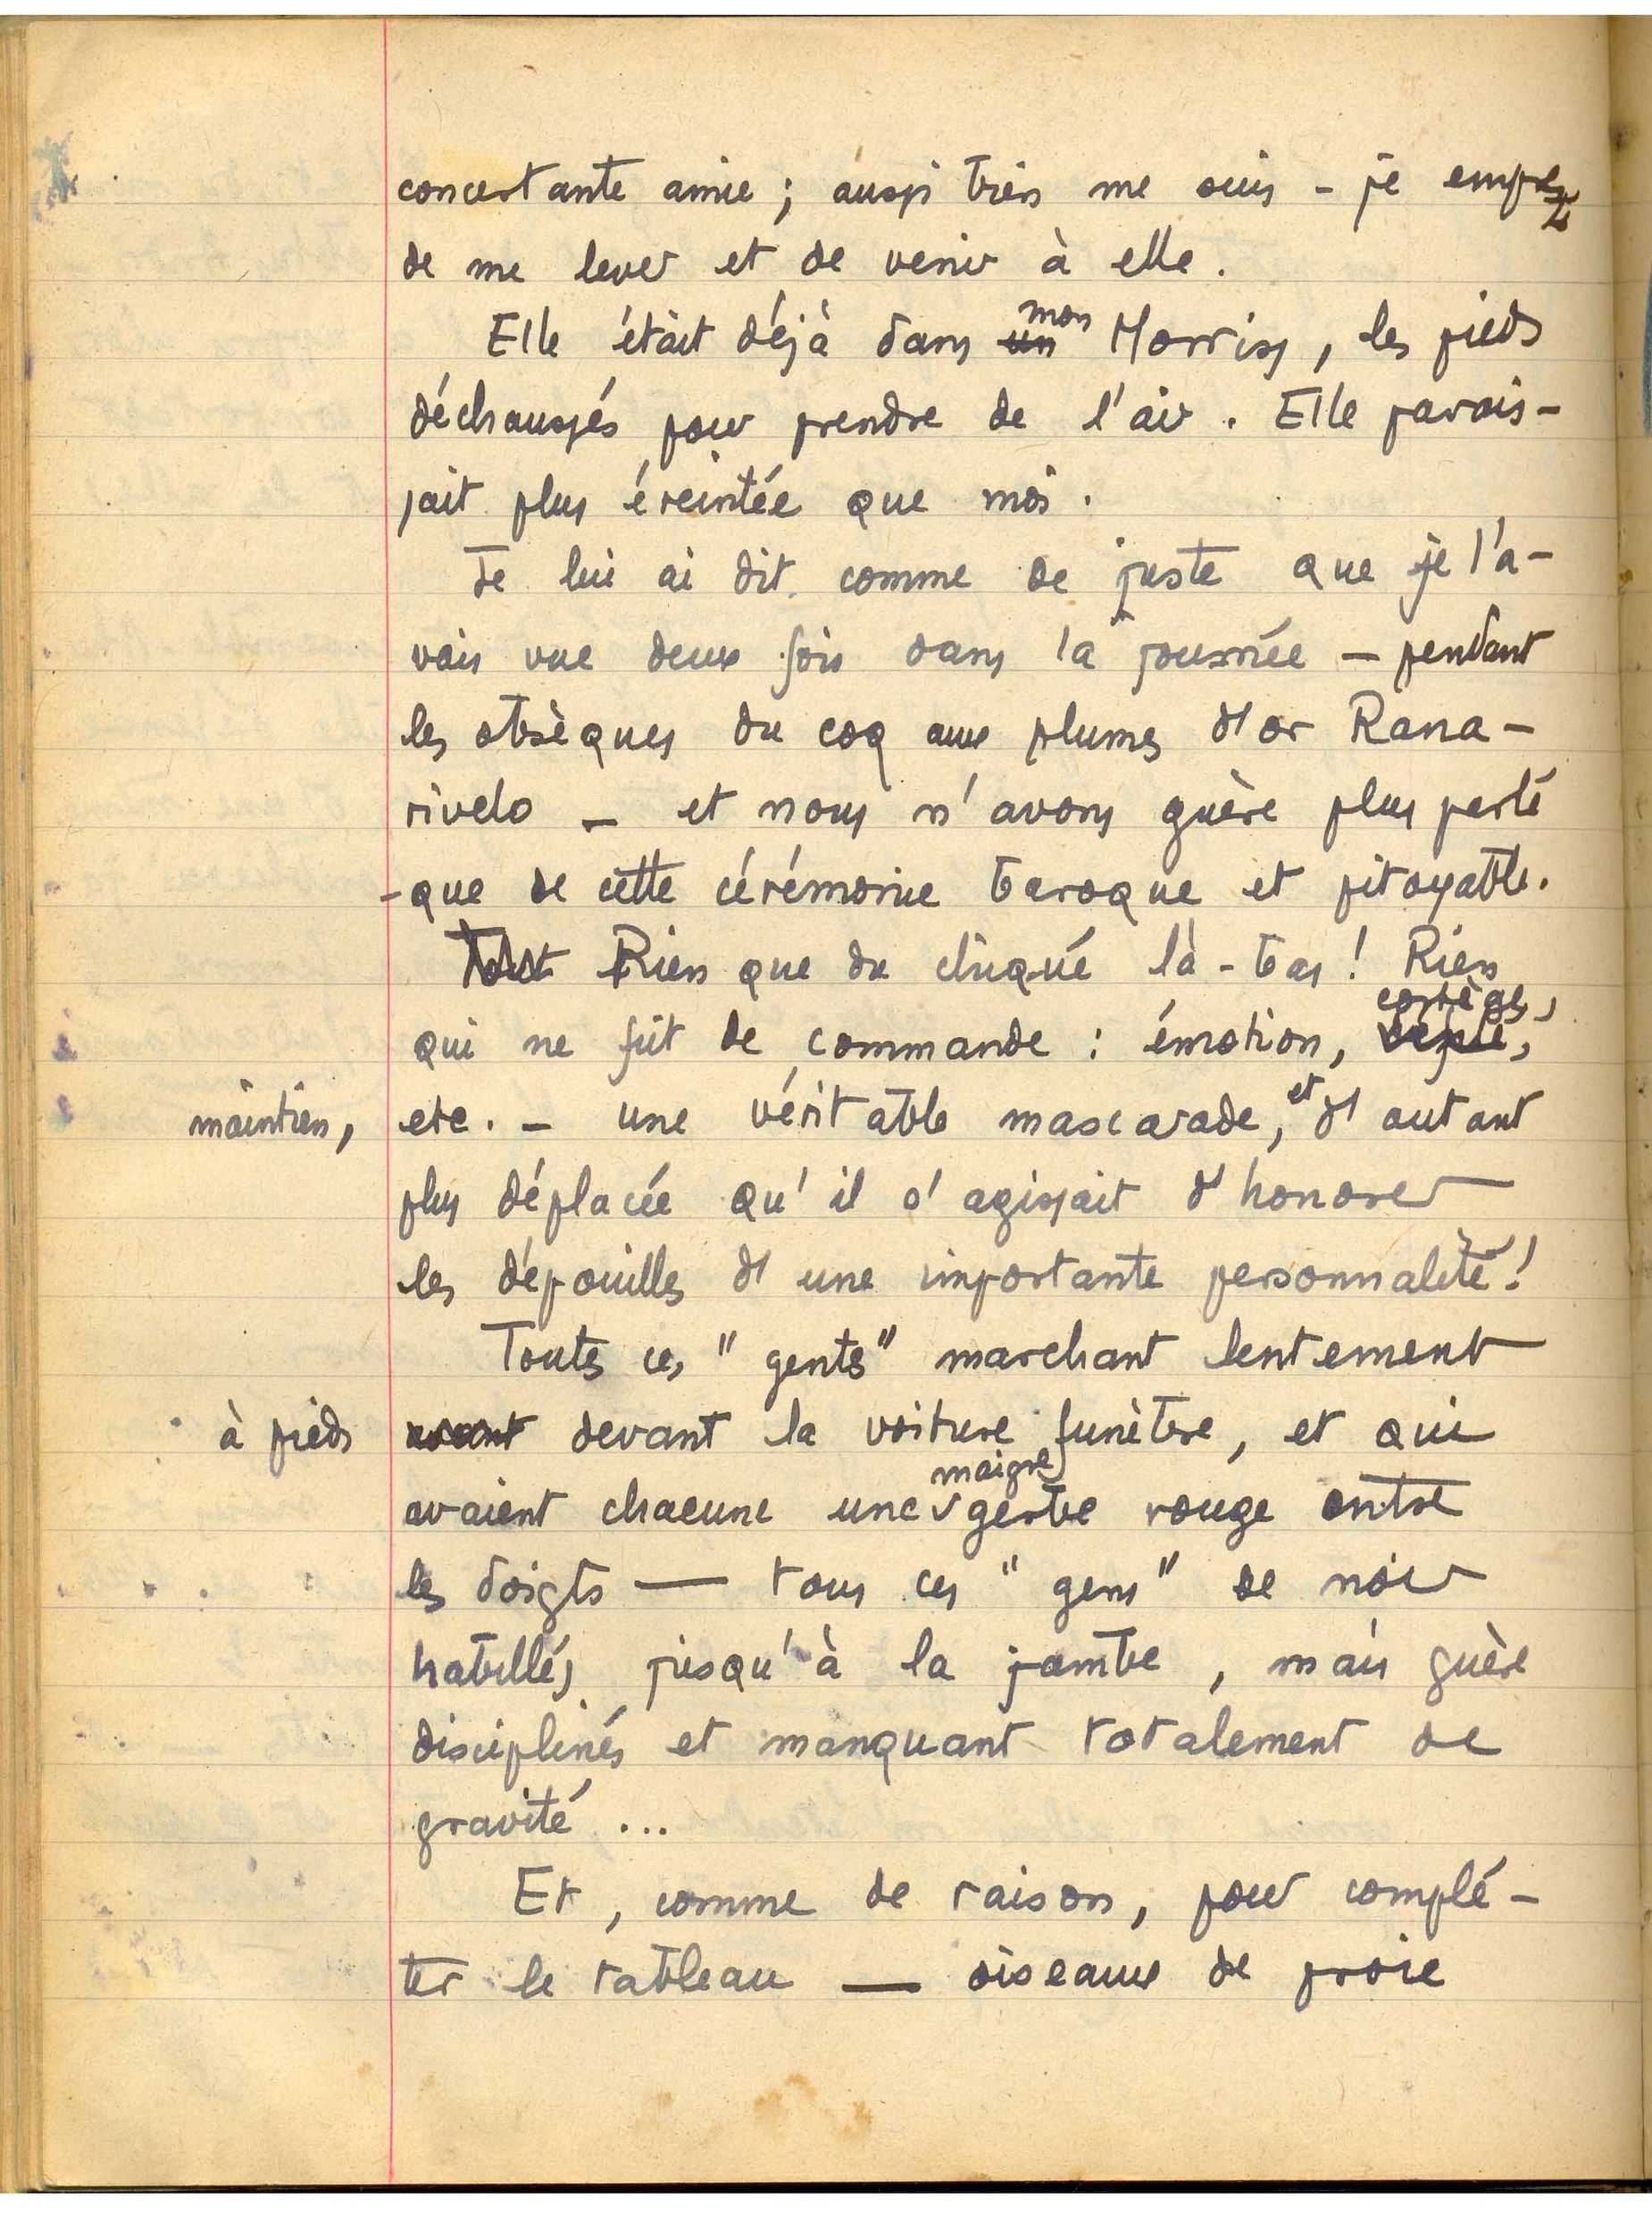 concertante amie ; aussi bien me suis-je empres
sé
de me lever et de venir à elle.
Elle était déjà dans un mon Morriss, les pieds
déchaussés pour prendre de l'air. Elle parais-
sait plus éreintée que moi.
Je lui ai dit comme de juste que je l'a-
vais vue deux fois dans la journée — pendant
les obsèques du coq aux plumes d'or Rana-
rivelo — et nous n'avons guère plus parlé
-que de cette cérémonie baroque et pitoyable.
Tout Rien que du chiqué là-bas ! Rien
qui ne fût de commande : émotion, cortège,
maintien, etc. — une véritable mascarade, et d'autant
plus déplacée qu'il s'agissait d'honorer
les dépouilles d'une importante personnalité !
Toutes ces "gents" marchant lentement
à pieds devant la voiture funèbre, et qui
avaient chacune une maigre gerbe rouge entre
les doigts — tous ces "gens" de noir
habillés jusqu'à la jambe, mais guère
disciplinés et manquant totalement de
gravité ...
Et, comme de raison, pour complé-
ter le tableau — oiseaux de proie